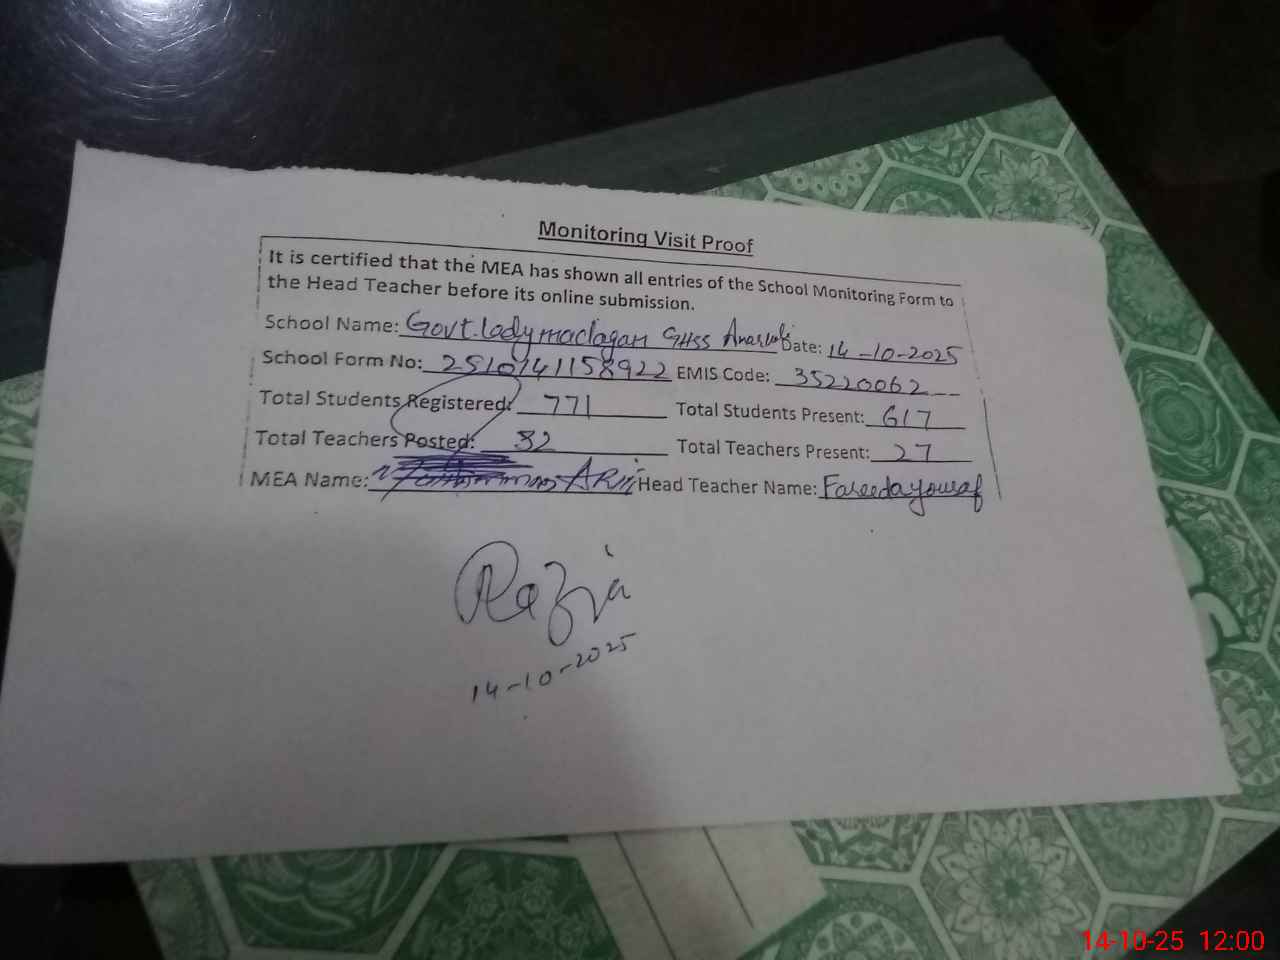 Monitoring Visit Proof
It is certified that the MEA has shown all entries of the School Monitoring Form to
the Head Teacher before its online submission.
School Name: Govt. lady maclagan GHSS Anarkali Date: 14-10-2025
School Form No: 2510141158922 EMIS Code: 35220062
Total Students Registered: 771 Total Students Present: 617
Total Teachers Posted: 32 Total Teachers Present: 27
MEA Name: Head Teacher Name: Fareeda yousaf
Razia
14-10-2025
14-10-25 12:00